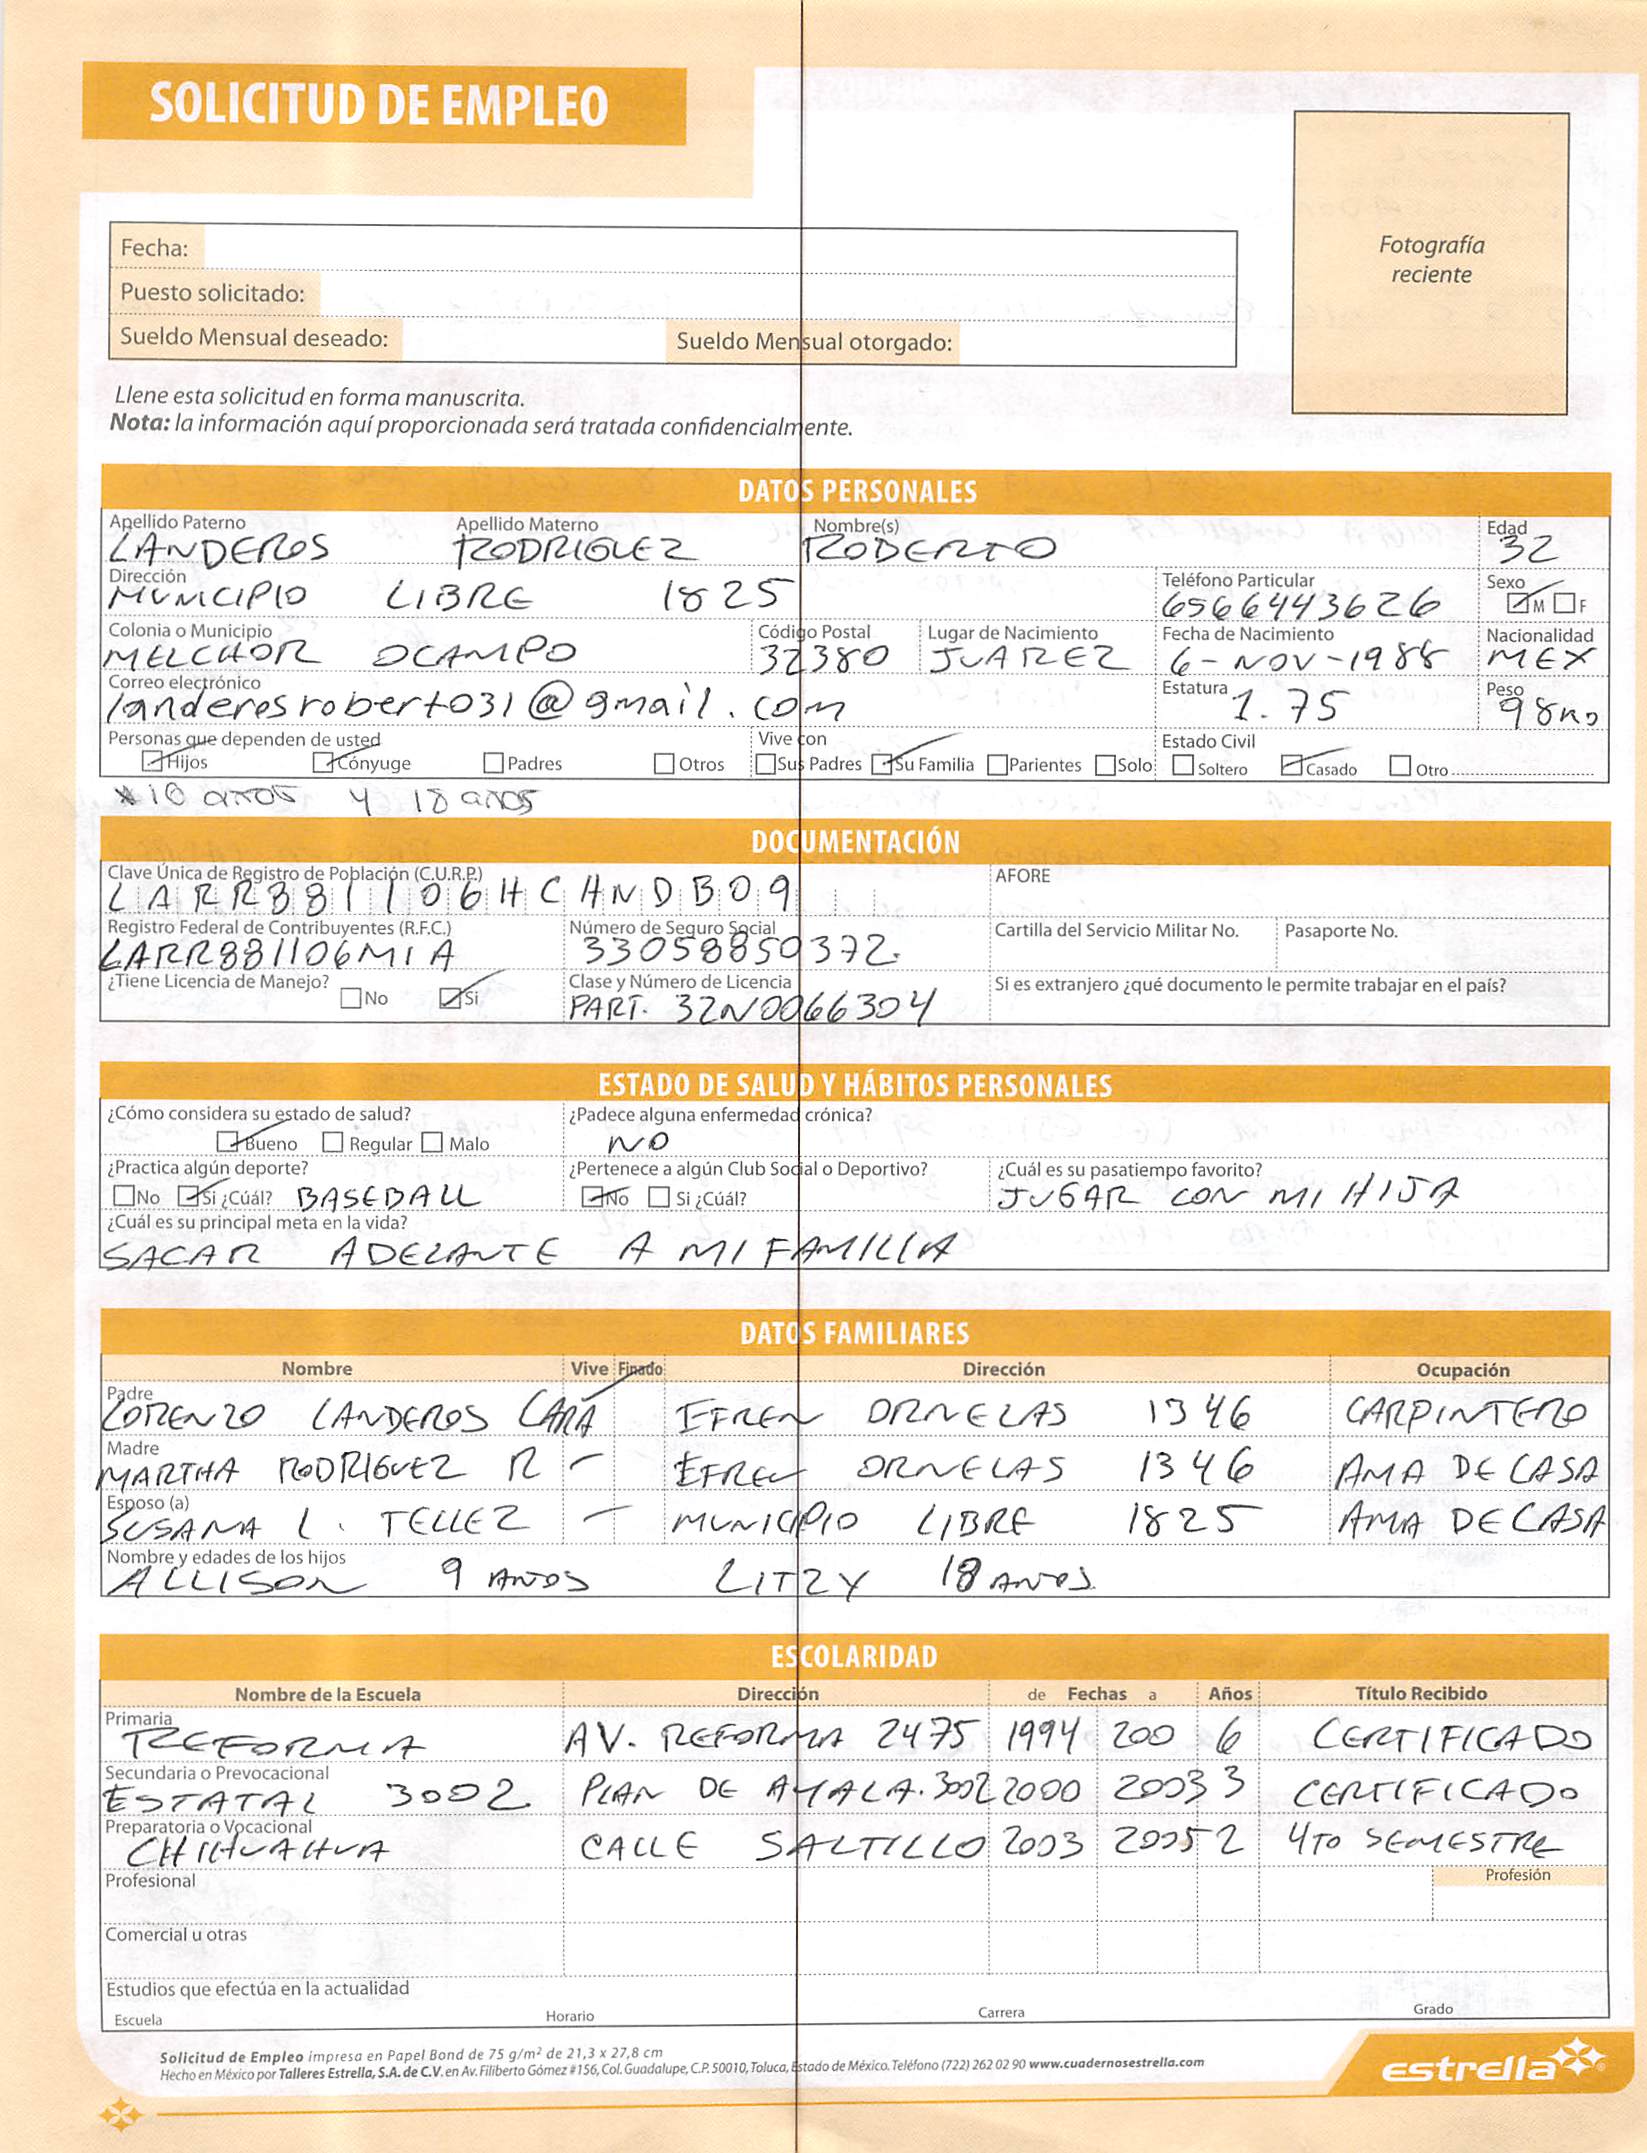 SOLICITUD DE EMPLEO
Fotografía
reciente
Fecha:
Puesto solicitado:
Sueldo Mensual deseado: Sueldo Mensual otorgado:
Llene esta solicitud en forma manuscrita.
Nota: la información aquí proporcionada será tratada confidencialmente.
DATOS PERSONALES
Apellido Paterno Apellido Materno Nombre(s) Edad
LANDEROS RODRIGUEZ ROBERTO 32
Dirección Teléfono Particular Sexo
MUNICIPIO LIBRE 1825 6566443626 M F
Colonia o Municipio Código Postal Lugar de Nacimiento Fecha de Nacimiento Nacionalidad
MELCHOR OCAMPO 32380 JUAREZ 6-NOV-1988 MEX
Correo electrónico Estatura Peso
landerosroberto031@gmail.com 1.75 98KG
Personas que dependen de usted Vive con Estado Civil
Hijos Cónyuge Padres Otros Sus Padres Su Familia Parientes Solo Soltero Casado Otro
*10 años y 18 años
DOCUMENTACIÓN
Clave Única de Registro de Población (C.U.R.P.) AFORE
LARR881106HCHNDB09
Registro Federal de Contribuyentes (R.F.C.) Número de Seguro Social Cartilla del Servicio Militar No. Pasaporte No.
LARR881106M1A 33058850372.
¿Tiene Licencia de Manejo? No Si Clase y Número de Licencia Si es extranjero ¿qué documento le permite trabajar en el país?
PART. 32N0066304
ESTADO DE SALUD Y HÁBITOS PERSONALES
¿Cómo considera su estado de salud? ¿Padece alguna enfermedad crónica?
Bueno Regular Malo NO
¿Practica algún deporte? ¿Pertenece a algún Club Social o Deportivo? ¿Cuál es su pasatiempo favorito?
No Si ¿Cuál? BASEBALL No Si ¿Cuál? JUGAR CON MI HIJA
¿Cuál es su principal meta en la vida?
SACAR ADELANTE A MI FAMILIA
DATOS FAMILIARES
Nombre Vive Finado Dirección Ocupación
Padre
LORENZO LANDEROS LARA EFREN ORNELAS 1346 CARPINTERO
Madre
MARTHA RODRIGUEZ R EFREN ORNELAS 1346 AMA DE CASA
Esposo (a)
SUSANA L. TELLEZ MUNICIPIO LIBRE 1825 AMA DE CASA
Nombre y edades de los hijos
ALLISON 9 AÑOS LITZY 18 AÑOS
ESCOLARIDAD
Nombre de la Escuela Dirección de Fechas a Años Título Recibido
Primaria
REFORMA AV. REFORMA 2475 1994 200 6 CERTIFICADO
Secundaria o Prevocacional
ESTATAL 3002 PLAN DE AYALA.3002 2000 2003 3 CERTIFICADO
Preparatoria o Vocacional
CHIHUAHUA CALLE SALTILLO 2003 2005 2 4TO SEMESTRE
Profesional Profesión
Comercial u otras
Estudios que efectúa en la actualidad
Escuela Horario Carrera Grado
Solicitud de Empleo impresa en Papel Bond de 75 g/m² de 21,3 x 27,8 cm
Hecho en México por Talleres Estrella, S.A. de C.V. en Av. Filiberto Gómez #156, Col. Guadalupe, C.P. 50010, Toluca, Estado de México. Teléfono (722) 262 02 90 www.cuadernosestrella.com
estrella